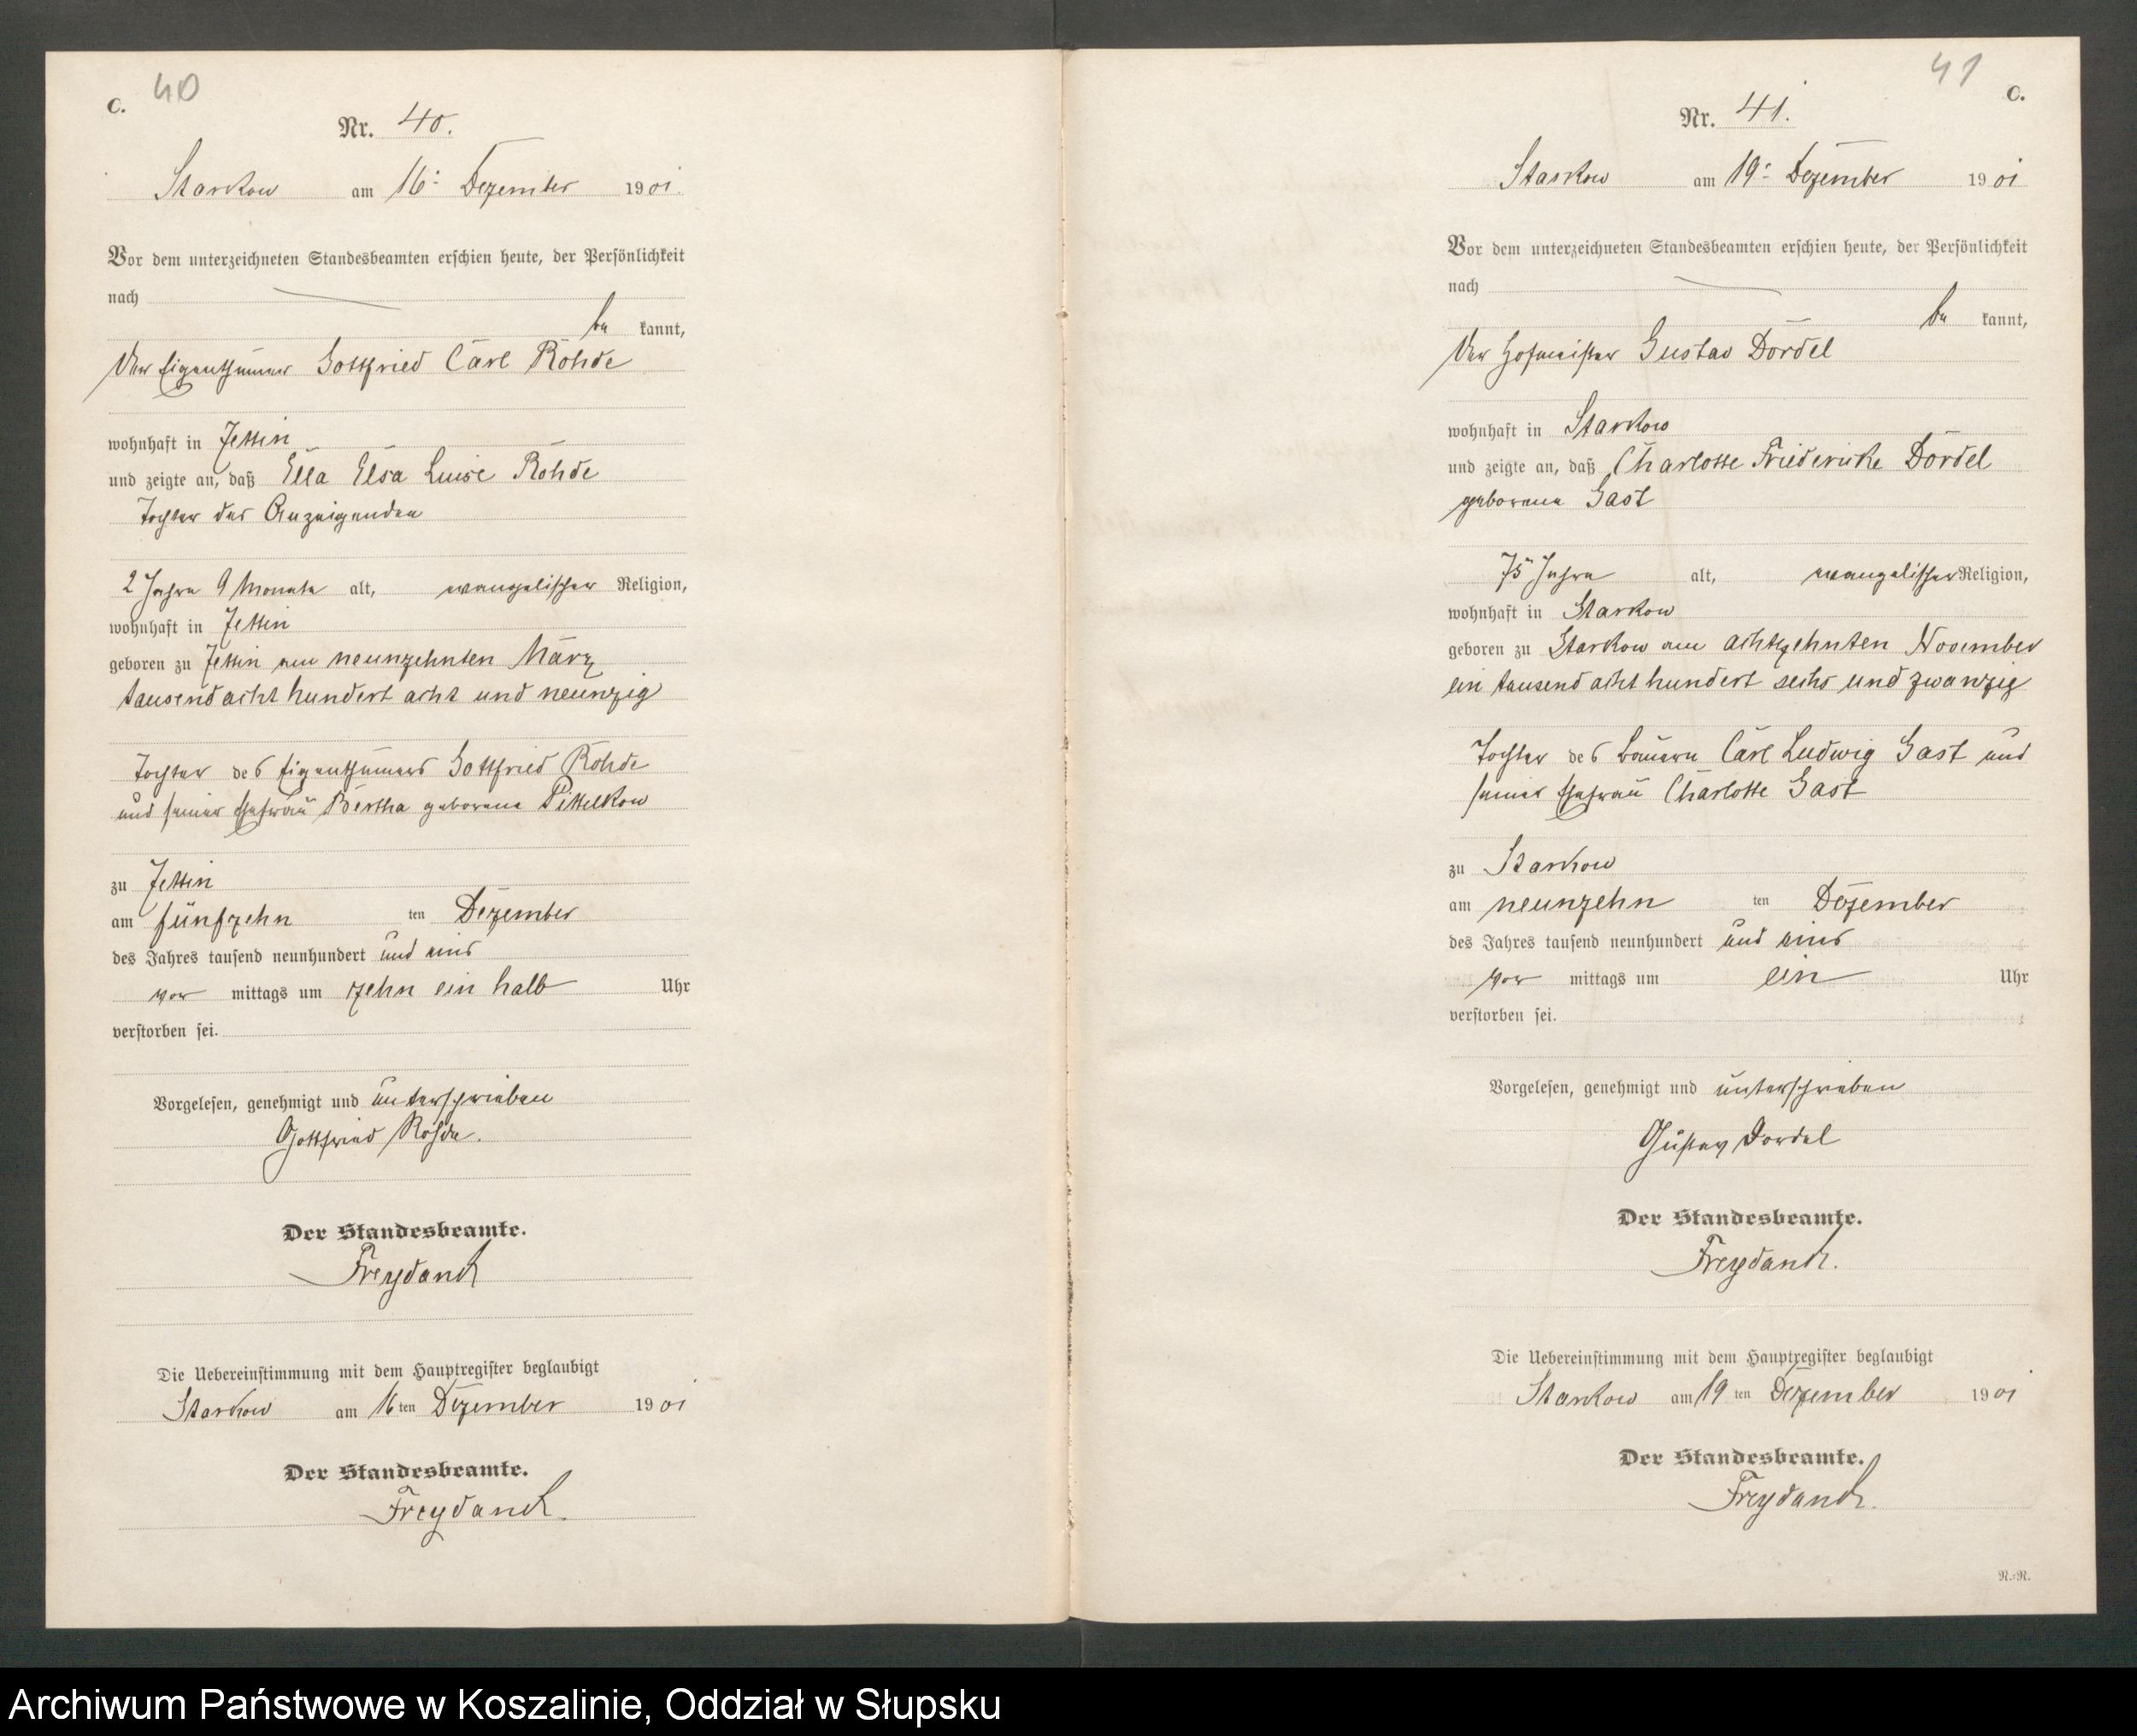 40
C.
Nr. 40.
Starkow am 16. Dezember 1901.
Vor dem unterzeichneten Standesbeamten erschien heute, der Persönlichkeit
nach
be kannt,
Der Eigenthümer Gottfried Carl Rohde
wohnhaft in Jettin
und zeigte an, daß Ella Elsa Luise Rohde
Tochter des Anzeigenden
2 Jahre 9 Monate alt, evangelischer Religion,
wohnhaft in Jettin
geboren zu Jettin am neunzehnten März
tausend acht hundert acht und neunzig
Tochter des Eigenthümers Gottfried Rohde
und seiner Ehefrau Bertha geborene Pittelkow
zu Jettin
am fünfzehn ten Dezember
des Jahres tausend neunhundert und eins
vor mittags um zehn ein halb Uhr
verstorben sei.
Vorgelesen, genehmigt und unterschrieben
Gottfried Rohde.
Der Standesbeamte.
Freydanck
Die Uebereinstimmung mit dem Hauptregister beglaubigt
Starkow am 16 ten Dezember 1901
Der Standesbeamte.
Freydanck.
41
C.
Nr. 41.
Starkow am 19. Dezember 1901
Vor dem unterzeichneten Standesbeamten erschien heute, der Persönlichkeit
nach
be kannt,
Der Hofmeister Gustav Dordel
wohnhaft in Starkow
und zeigte an, daß Charlotte Friedericke Dordel
geborene Gast
75 Jahre alt, evangelischer Religion,
wohnhaft in Starkow
geboren zu Starkow am achtzehnten November
ein tausend acht hundert sechs und zwanzig
Tochter des Bauern Carl Ludwig Gast und
seiner Ehefrau Charlotte Gast
zu Starkow
am neunzehn ten Dezember
des Jahres tausend neunhundert und eins
vor mittags um ein Uhr
verstorben sei.
Vorgelesen, genehmigt und unterschrieben
Gustav Dordel
Der Standesbeamte.
Freydanck.
Die Uebereinstimmung mit dem Hauptregister beglaubigt
Starkow am 19 ten Dezember 1901
Der Standesbeamte.
Freydanck.
N.-N.
Archiwum Państwowe w Koszalinie, Oddział w Słupsku